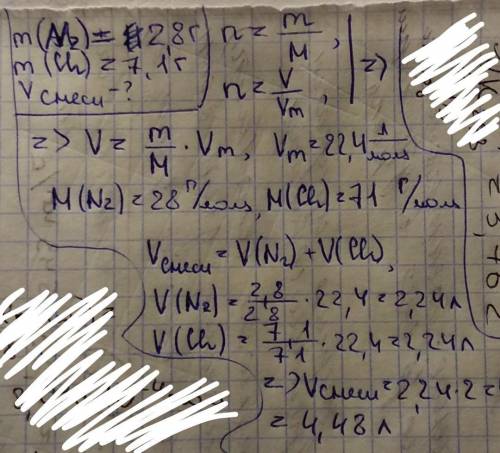 m(N₂) = 2,8г
m(Cl₂) = 7,1г
Vсмеси - ?
n = m/M,
n = V/Vm, | =>
=> V = m/M · Vm, Vm = 22,4 л/моль
M(N₂) = 28 г/моль, M(Cl₂) = 71 г/моль
Vсмеси = V(N₂) + V(Cl₂),
V(N₂) = 2,8/28 · 22,4 = 2,24л
V(Cl₂) = 7,1/71 · 22,4 = 2,24л
=> Vсмеси = 2,24 · 2 =
= 4,48 л